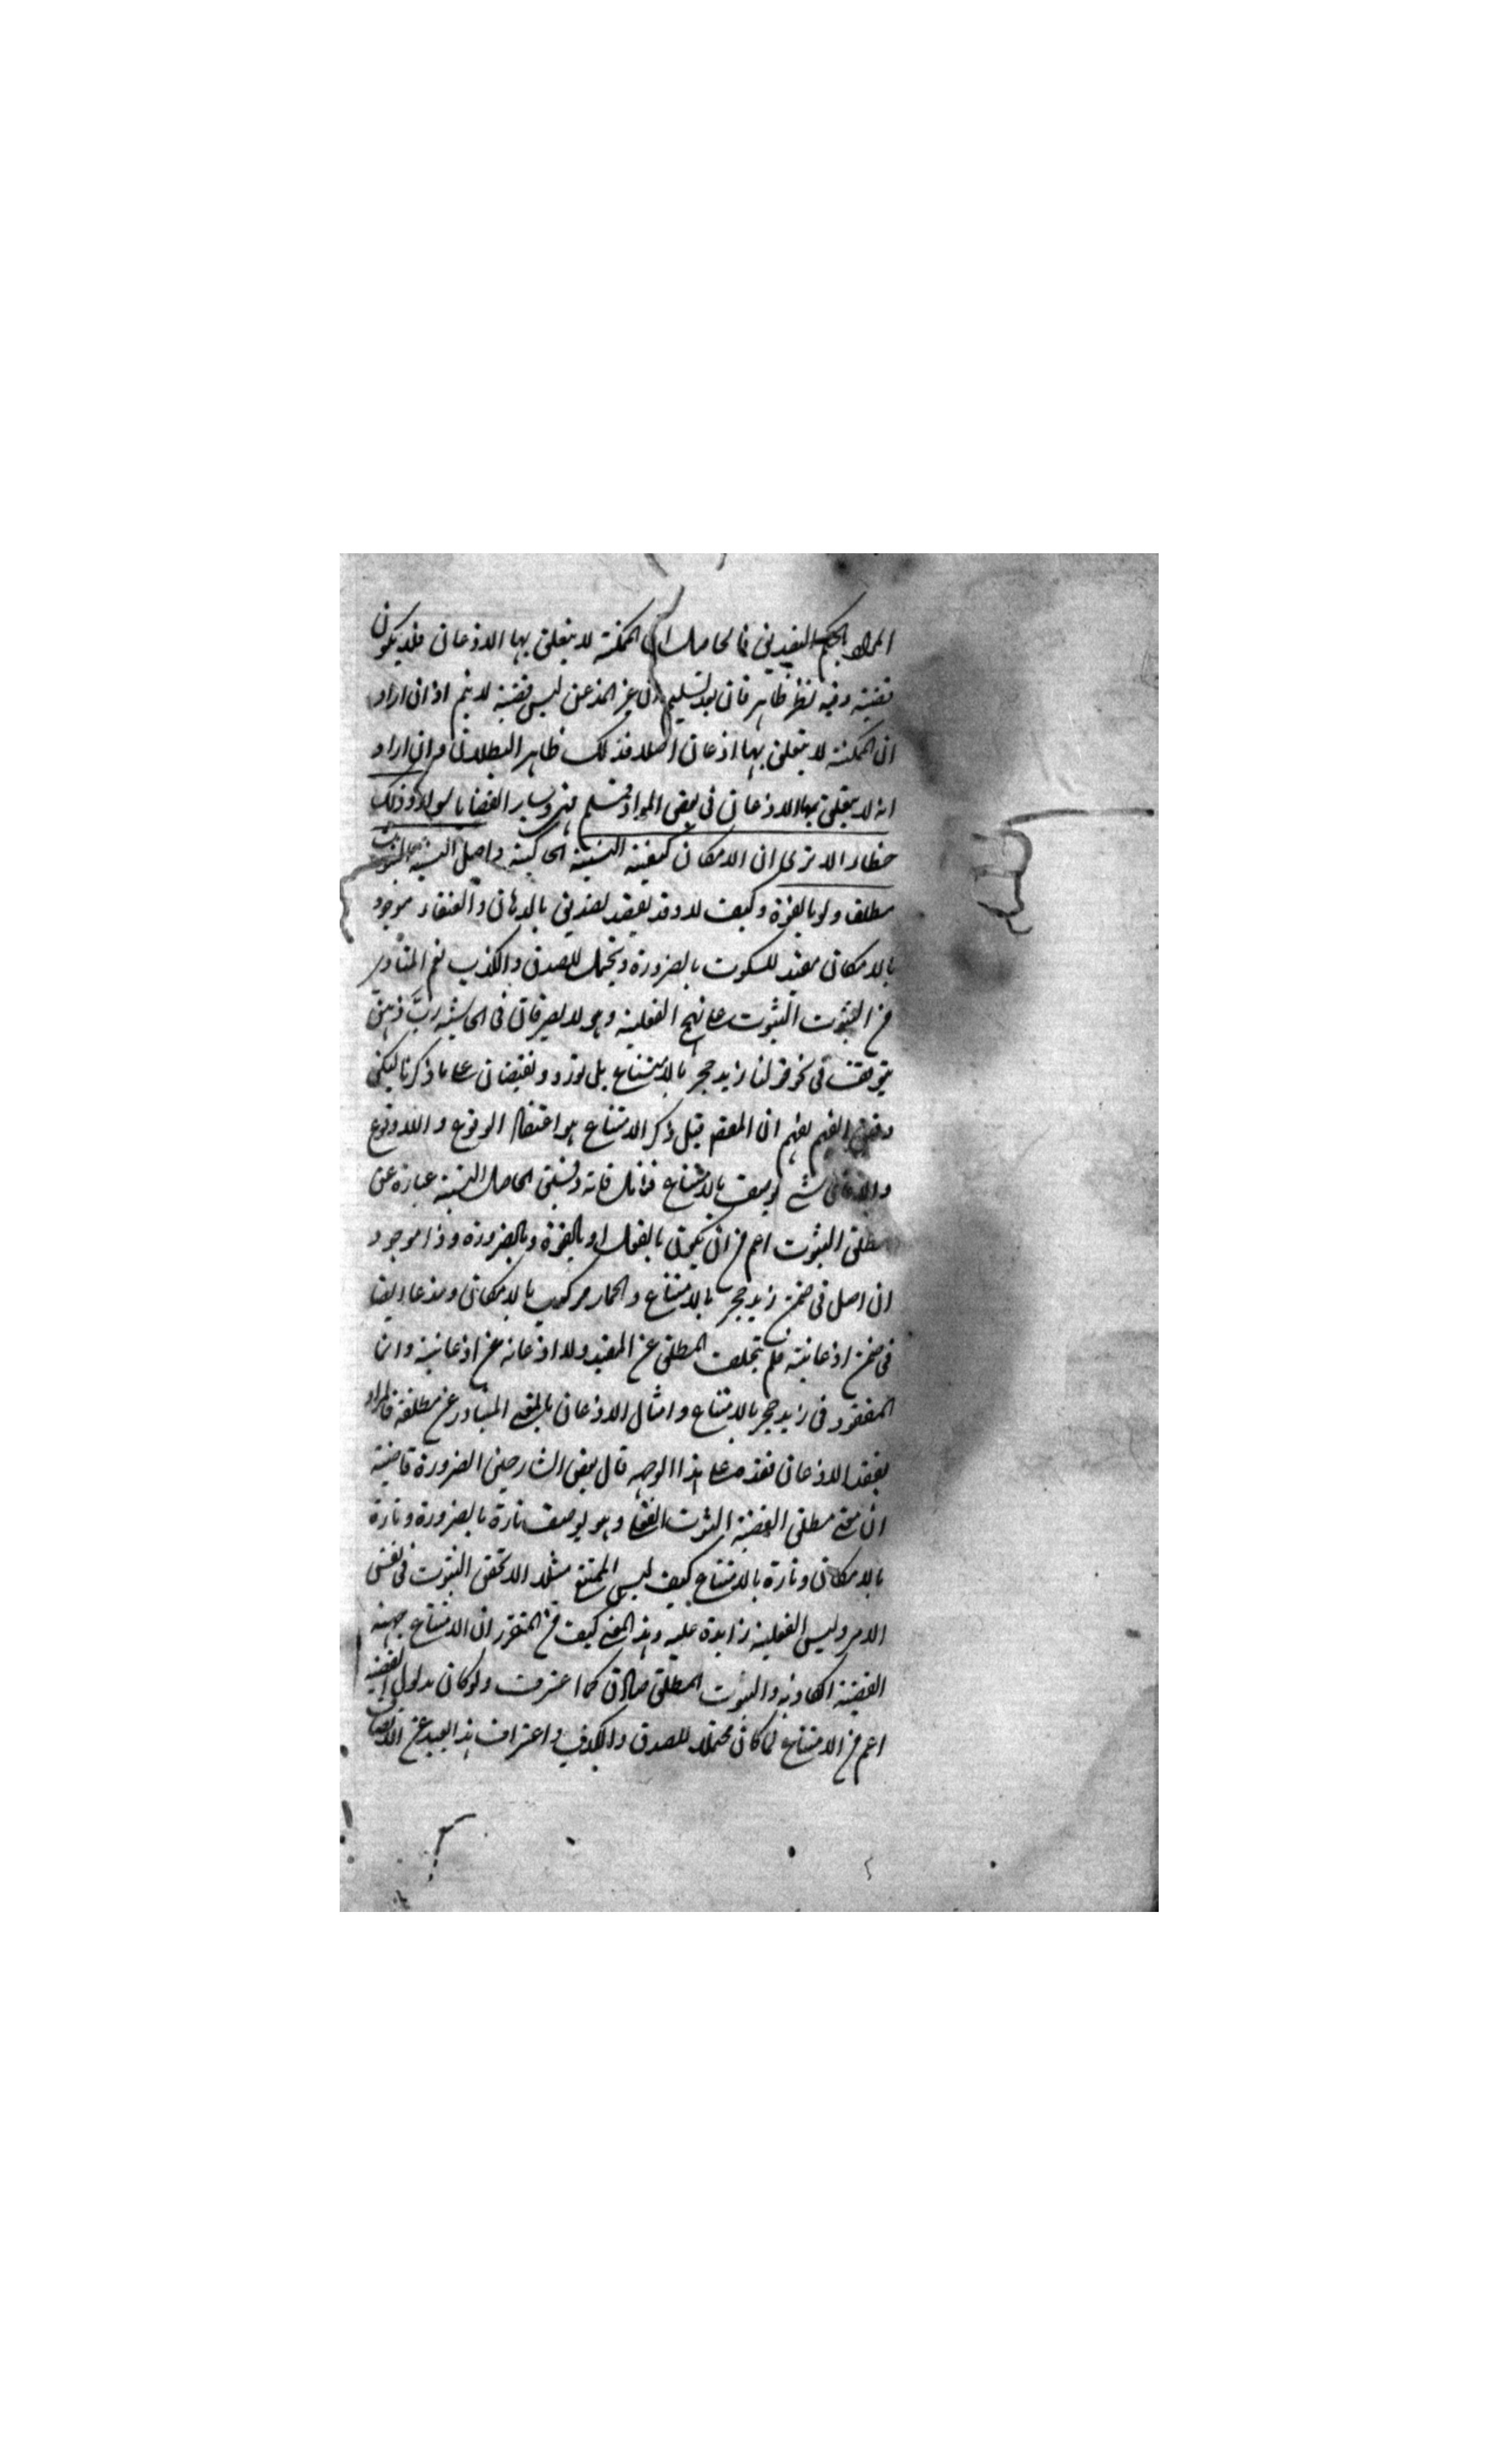 المراد بالحكم التصديق فالحاصل ان الممكنة لا يتعلق بها الاذعان فلا يكون
قضية وفيه نظر ظاهر فان بعد تسليم ان غير المذعن ليس قضية لا يتم اذ ان اراد
ان الممكنة لا يتعلق بها اذعان اصلا فذلك ظاهر البطلان وان اراد
انه لا يتعلق بها الاذعان في بعض المواد فمسلم فهي وساير القضايا سواء وذلك
خطاء الا ترى ان الامكان كيفية النسبة الحاكية واصل النسبة الثبوت
مطلقا ولو بالقوة وكيف لا وقد يعقد تصديق بالاذهان والعنقاء موجود
بالامكان مفيد للسكوت بالضرورة ويحتمل للصدق والكذب نعم المتبادر
من الثبوت الثبوت على نهج الفعلية وهو لا يضر قال في الحاشية رب ذهن
يتوقف في نحو قولنا زيد حجر بالامتناع بل تردد ونقيضان على ما ذكرنا ليكن
دقيق الفهم يفهم ان المعقد قبل ذكر الامتناع هو اقتضاء الوقوع واللاوقوع
والاذعان شئ يوصف بالامتناع فتأمل فانه دقيق الحاصل النسبة عبارة عن
مطلق الثبوت اعم من ان يكون بالفعل او بالقوة وبالضرورة وذا موجود
ان اصل في ضمن زيد حجر بالامتناع والحمار مركوب بالامكان ومذعنا ايضا
في ضمن اذعانية فلم يتخلف المطلق عن المقيد ولا اذعانه عن اذعانية وانما
المفقود في زيد حجر بالامتناع وامثال الاذعان بالمعنى المتبادر عن مطلقه فالمراد
بفقد الاذعان فقده على هذا الوجه قال بعض الشارحين الضرورة قاضية
ان معنى مطلق القضية الثبوت الفعلي وهو يوصف تارة بالضرورة وتارة
بالامكان وتارة بالامتناع كيف ليس الممتنع مثلا الا تحقق الثبوت في نفس
الامر وليس الفعلية زايدة عليه وهذا المعنى كيف من المتقرر ان الامتناع جهة
القضية الكاذبة والثبوت المطلق صادق كما اعترفت ولو كان مدلول القضية
اعم من الامتناع لما كان محتملا للصدق والكذب واعتراف هذا البعيد عن الانصاف